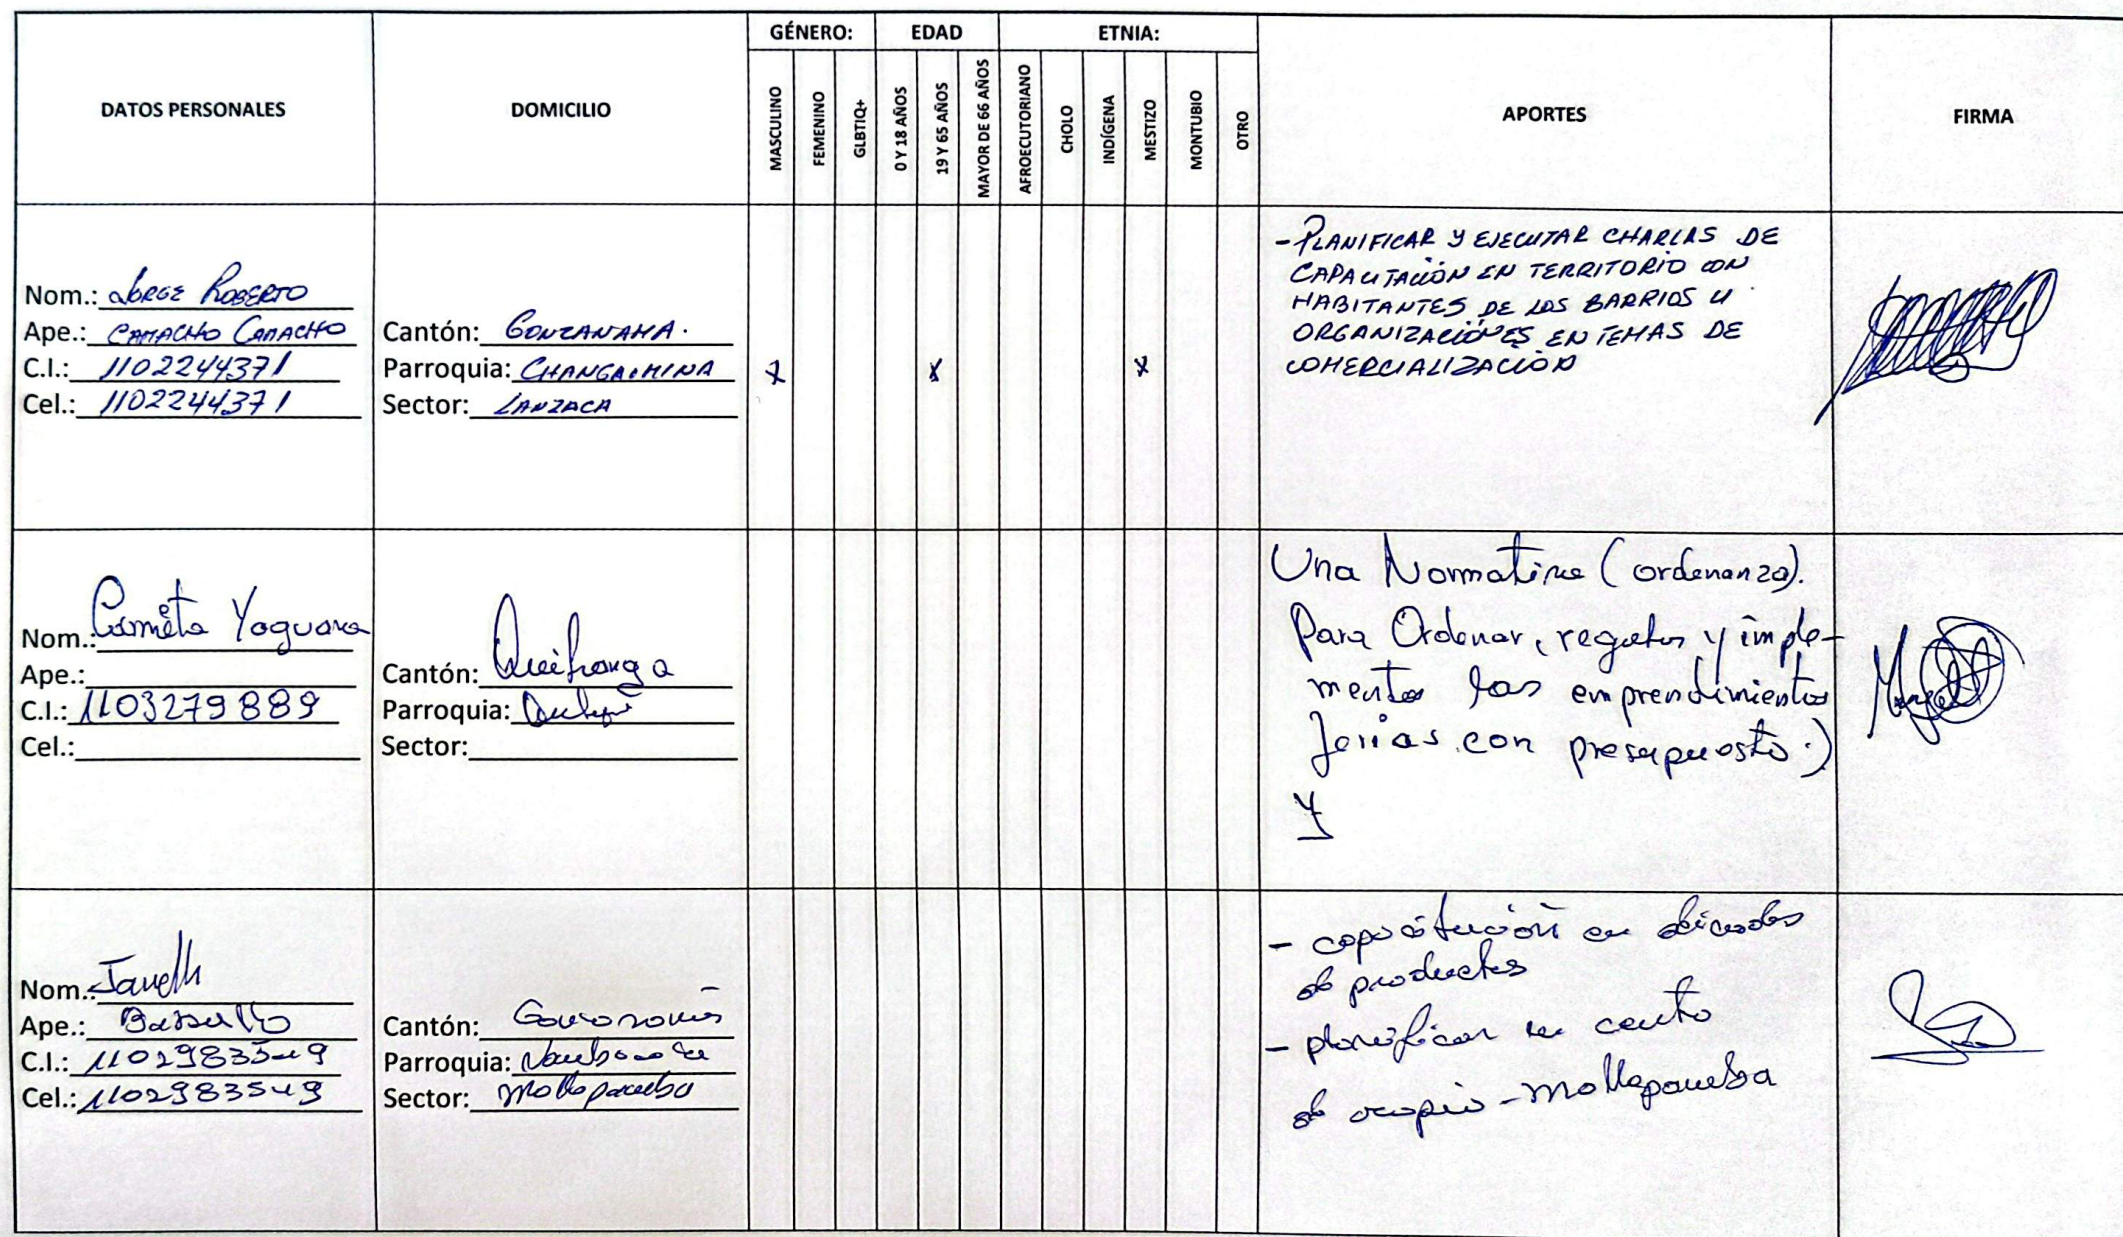 DATOS PERSONALES
DOMICILIO
GÉNERO:
EDAD
ETNIA:
MASCULINO
FEMENINO
GLBTIQ+
0 Y 18 AÑOS
19 Y 65 AÑOS
MAYOR DE 66 AÑOS
AFROECUTORIANO
CHOLO
INDÍGENA
MESTIZO
MONTUBIO
OTRO
APORTES
FIRMA
Nom.: JORGE ROBERTO
Ape.: CAMACHO CAMACHO
C.I.: 1102244371
Cel.: 1102244371
Cantón: GONZANAMA.
Parroquia: CHANGAIMINA
Sector: LANZACA
X
X
X
- PLANIFICAR Y EJECUTAR CHARLAS DE
CAPACITACIÓN EN TERRITORIO CON
HABITANTES DE LOS BARRIOS U
ORGANIZACIÓNES EN TEMAS DE
COMERCIALIZACIÓN
Nom.: Yaguana
Ape.:
C.I.: 1103279889
Cel.:
Cantón: Quilanga
Parroquia:
Sector:
Una Normativa (ordenanza).
Para Ordenar, regular y imple-
mentar las emprendimientos
ferias con presupuesto.)
y
Nom.:
Ape.:
C.I.: 1102983549
Cel.: 1102983549
Cantón:
Parroquia:
Sector: Mollepamba
- capacitación en
de productos
- planificar un centro
de acopio - Mollepamba